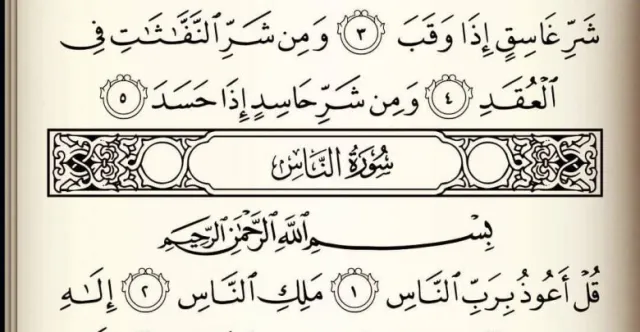 شَرِّ غَاسِقٍ إِذَا وَقَبَ ٣ وَمِن شَرِّ ٱلنَّفَّٰثَٰتِ فِى
ٱلْعُقَدِ ٤ وَمِن شَرِّ حَاسِدٍ إِذَا حَسَدَ ٥
سُورَةُ النَّاسِ
بِسْمِ ٱللَّهِ ٱلرَّحْمَٰنِ ٱلرَّحِيمِ
قُلْ أَعُوذُ بِرَبِّ ٱلنَّاسِ ١ مَلِكِ ٱلنَّاسِ ٢ إِلَٰهِ